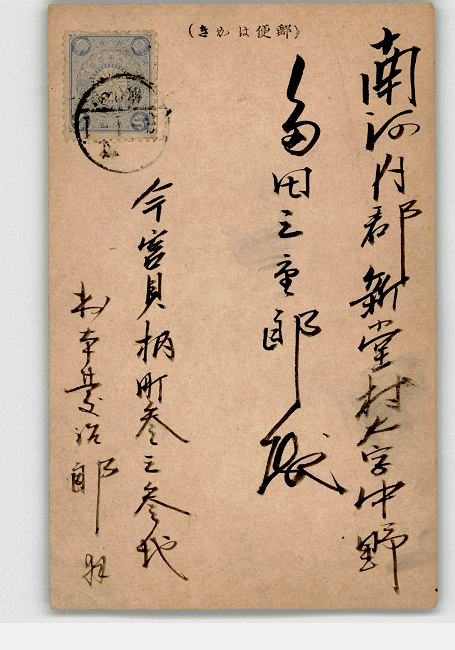 (郵便はがき)
南河内郡新堂村大字中野
多田三重郎殿
今宮貝柄町参三参地
郎